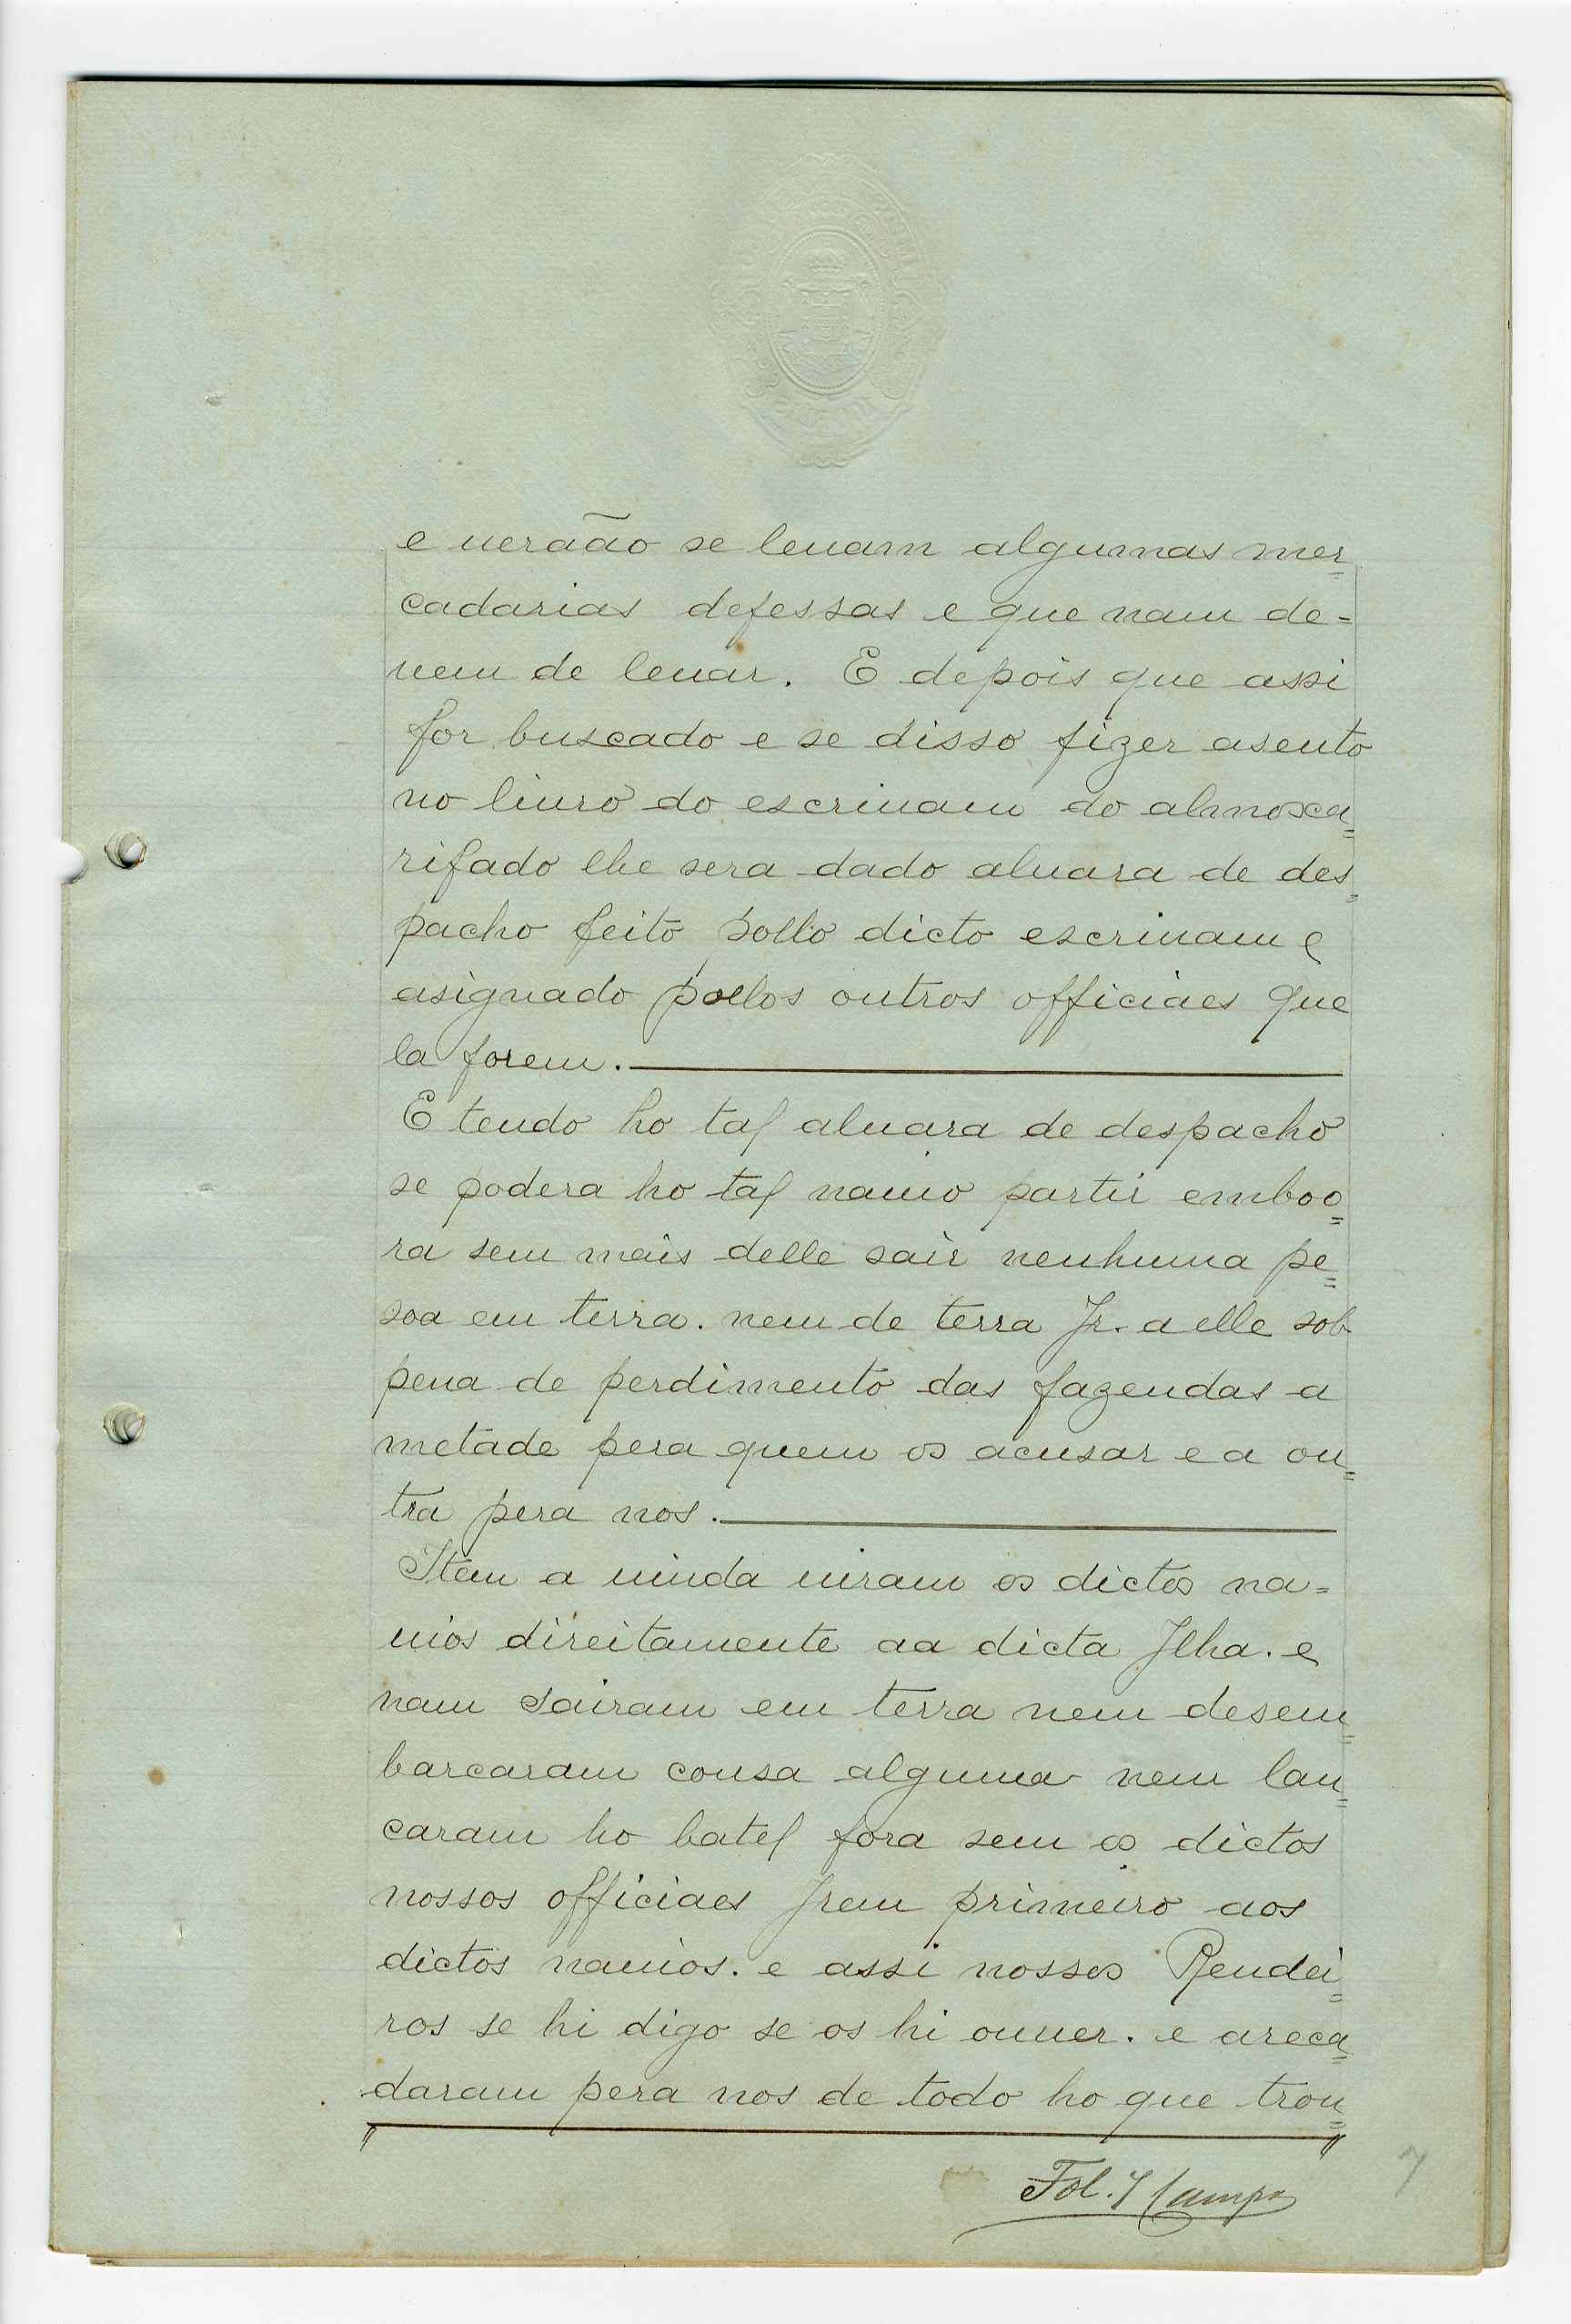 e uerãao se leuam algumas mer=
cadarias defessas e que nam de=
uem de leuar. E depois que assi
for buscado e se disso fizer asento
no liuro do escriuam do almoxa=
rifado lhe sera dado aluara de des=
pacho feito pollo dicto escriuam e
asignado pollos outros officiaes que
la forem.
E tendo ho tal aluara de despacho
se podera ho tal nauio partir emboo=
ra sem mais delle sair nenhuma pe=
soa em terra. nem de terra Jr. a elle sob
pena de perdimento das fazendas a
metade pera quem os acusar e a ou=
tra pera nos.
Item a uinda uiram os dictos na=
uios direitamente aa dicta Jlha. e
nam sairam em terra nem desem=
barcaram cousa alguma nem lan=
caram ho batel fora sem os dictos
nossos officiaes Jrem primeiro aos
dictos nauios. e assi nossos Rendei=
ros se hi digo se os hi ouuer. e areca=
daram pera nos de todo ho que trou=
Fol. 7 Campos
7